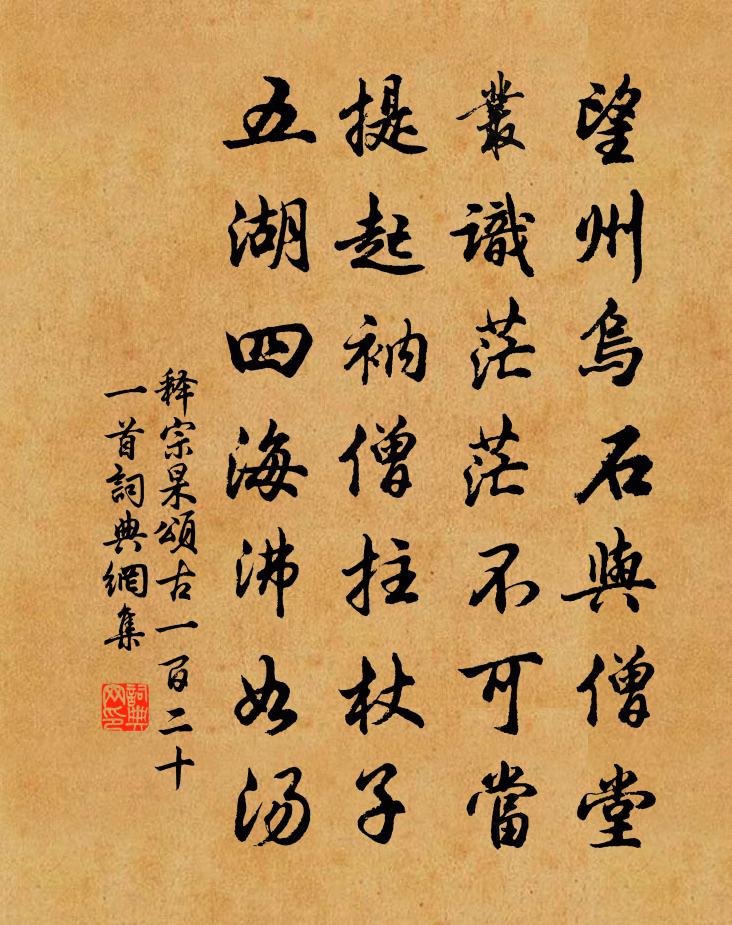 望州烏石與僧堂
叢識茫茫不可當
提起衲僧拄杖子
五湖四海沸如湯
释宗杲頌古一百二十
一首詞典網集
詞典
网印